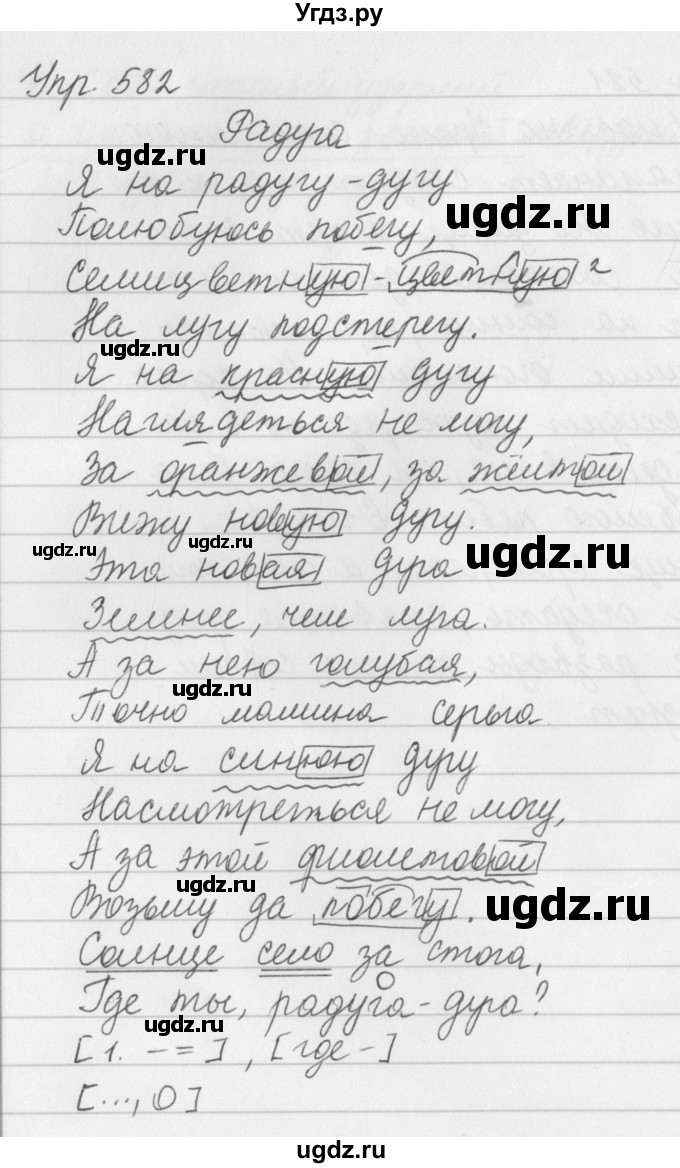 Угдз.ру
Упр. 582
Радуга
ugdz.ru
Я на радугу-дугу
ugdz.ru
Полюбуюсь побегу,
Семицветную-цветную²
На лугу подстерегу.
ugdz.ru
Я на красную дугу
Наглядеться не могу,
За оранжевой, за жёлтой
Вижу новую дугу.
ugdz.ru
ugdz.ru
ugdz.ru
Эта новая дуга
Зеленее, чем луга.
А за нею голубая,
ugdz.ru
Точно мамина серьга.
Я на синюю дугу
Насмотреться не могу,
А за этой фиолетовой
ugdz.ru
ugdz.ru
Возьму да побегу.
Солнце село за стога,
Где ты, радуга-дуга?
ugdz.ru
[1. – =], [где –]
[..., О]
ugdz.ru